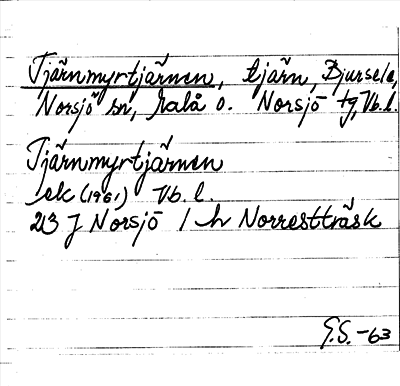 Tjärnmyrtjärnen, tjärn, Bjursele,
Norsjö sn, Malå o. Norsjö tg, Vb. l.
Tjärnmyrtjärnen
ek (1961) Vb. l.
23 J Norsjö 1 h Norrestträsk
G.S. -63